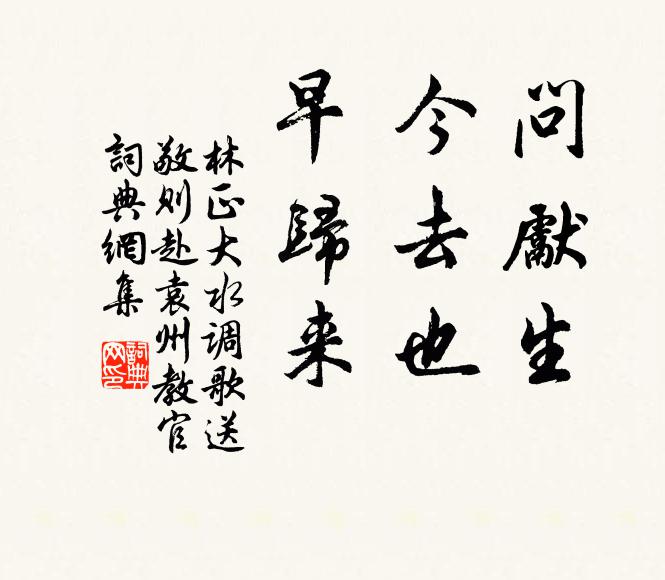 問獻生
今去也
早歸来
林正大水调歌送
敬則赴袁州教官
詞典網集
詞典网印